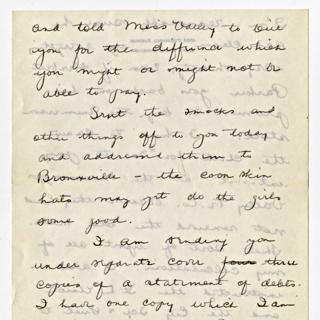 and told Miss Valley to give
you for the diffrence which
you might or might not be
able to pay.
Sent the smocks and
other things off to you today
and addressed them to
Bronxville – the coon skin
hats may yet do the girls
some good.
I am sending you
under separate cover four three
copies of a statement of debts.
I have one copy which I am